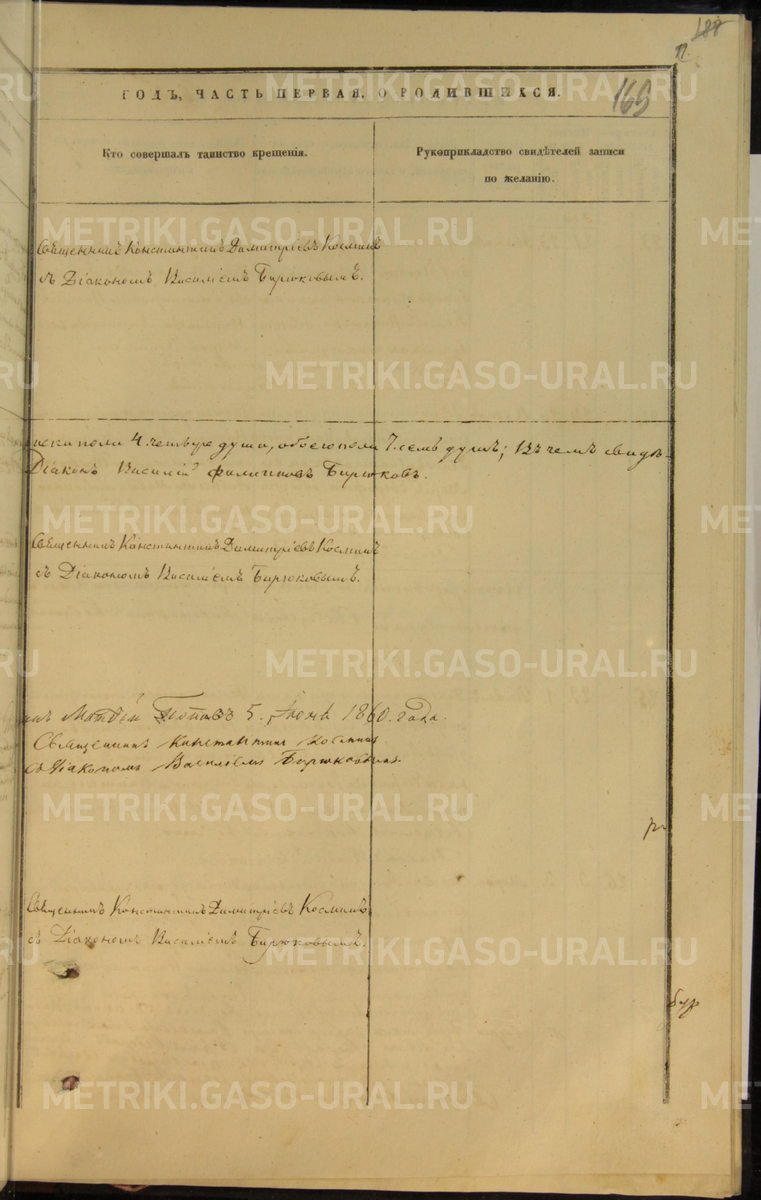 188
12.
169
ГОДЪ, ЧАСТЬ ПЕРВАЯ, О РОДИВШИХСЯ.
Кто совершалъ таинство крещенія.
Рукоприкладство свидѣтелей записи
по желанію.
Священникъ Константинъ Димитріевъ Космин
съ Діакономъ Василіемъ Бирюковымъ.
пола 4. четыре души, обоего пола 7. семь душъ; Въ чемъ свидѣ-
Діаконъ Василій Филиповъ Бирюковъ.
Священникъ Константинъ Димитріевъ Космин
съ Діакономъ Василіемъ Бирюковымъ.
Поповъ 5. Іюня 1860. года.
Священникъ Константинъ Космин
съ Діакономъ Василіемъ Бирюковымъ.
Священникъ Константинъ Димитріевъ Космин
съ Діакономъ Василіемъ Бирюковымъ.
METRIKI.GASO-URAL.RU